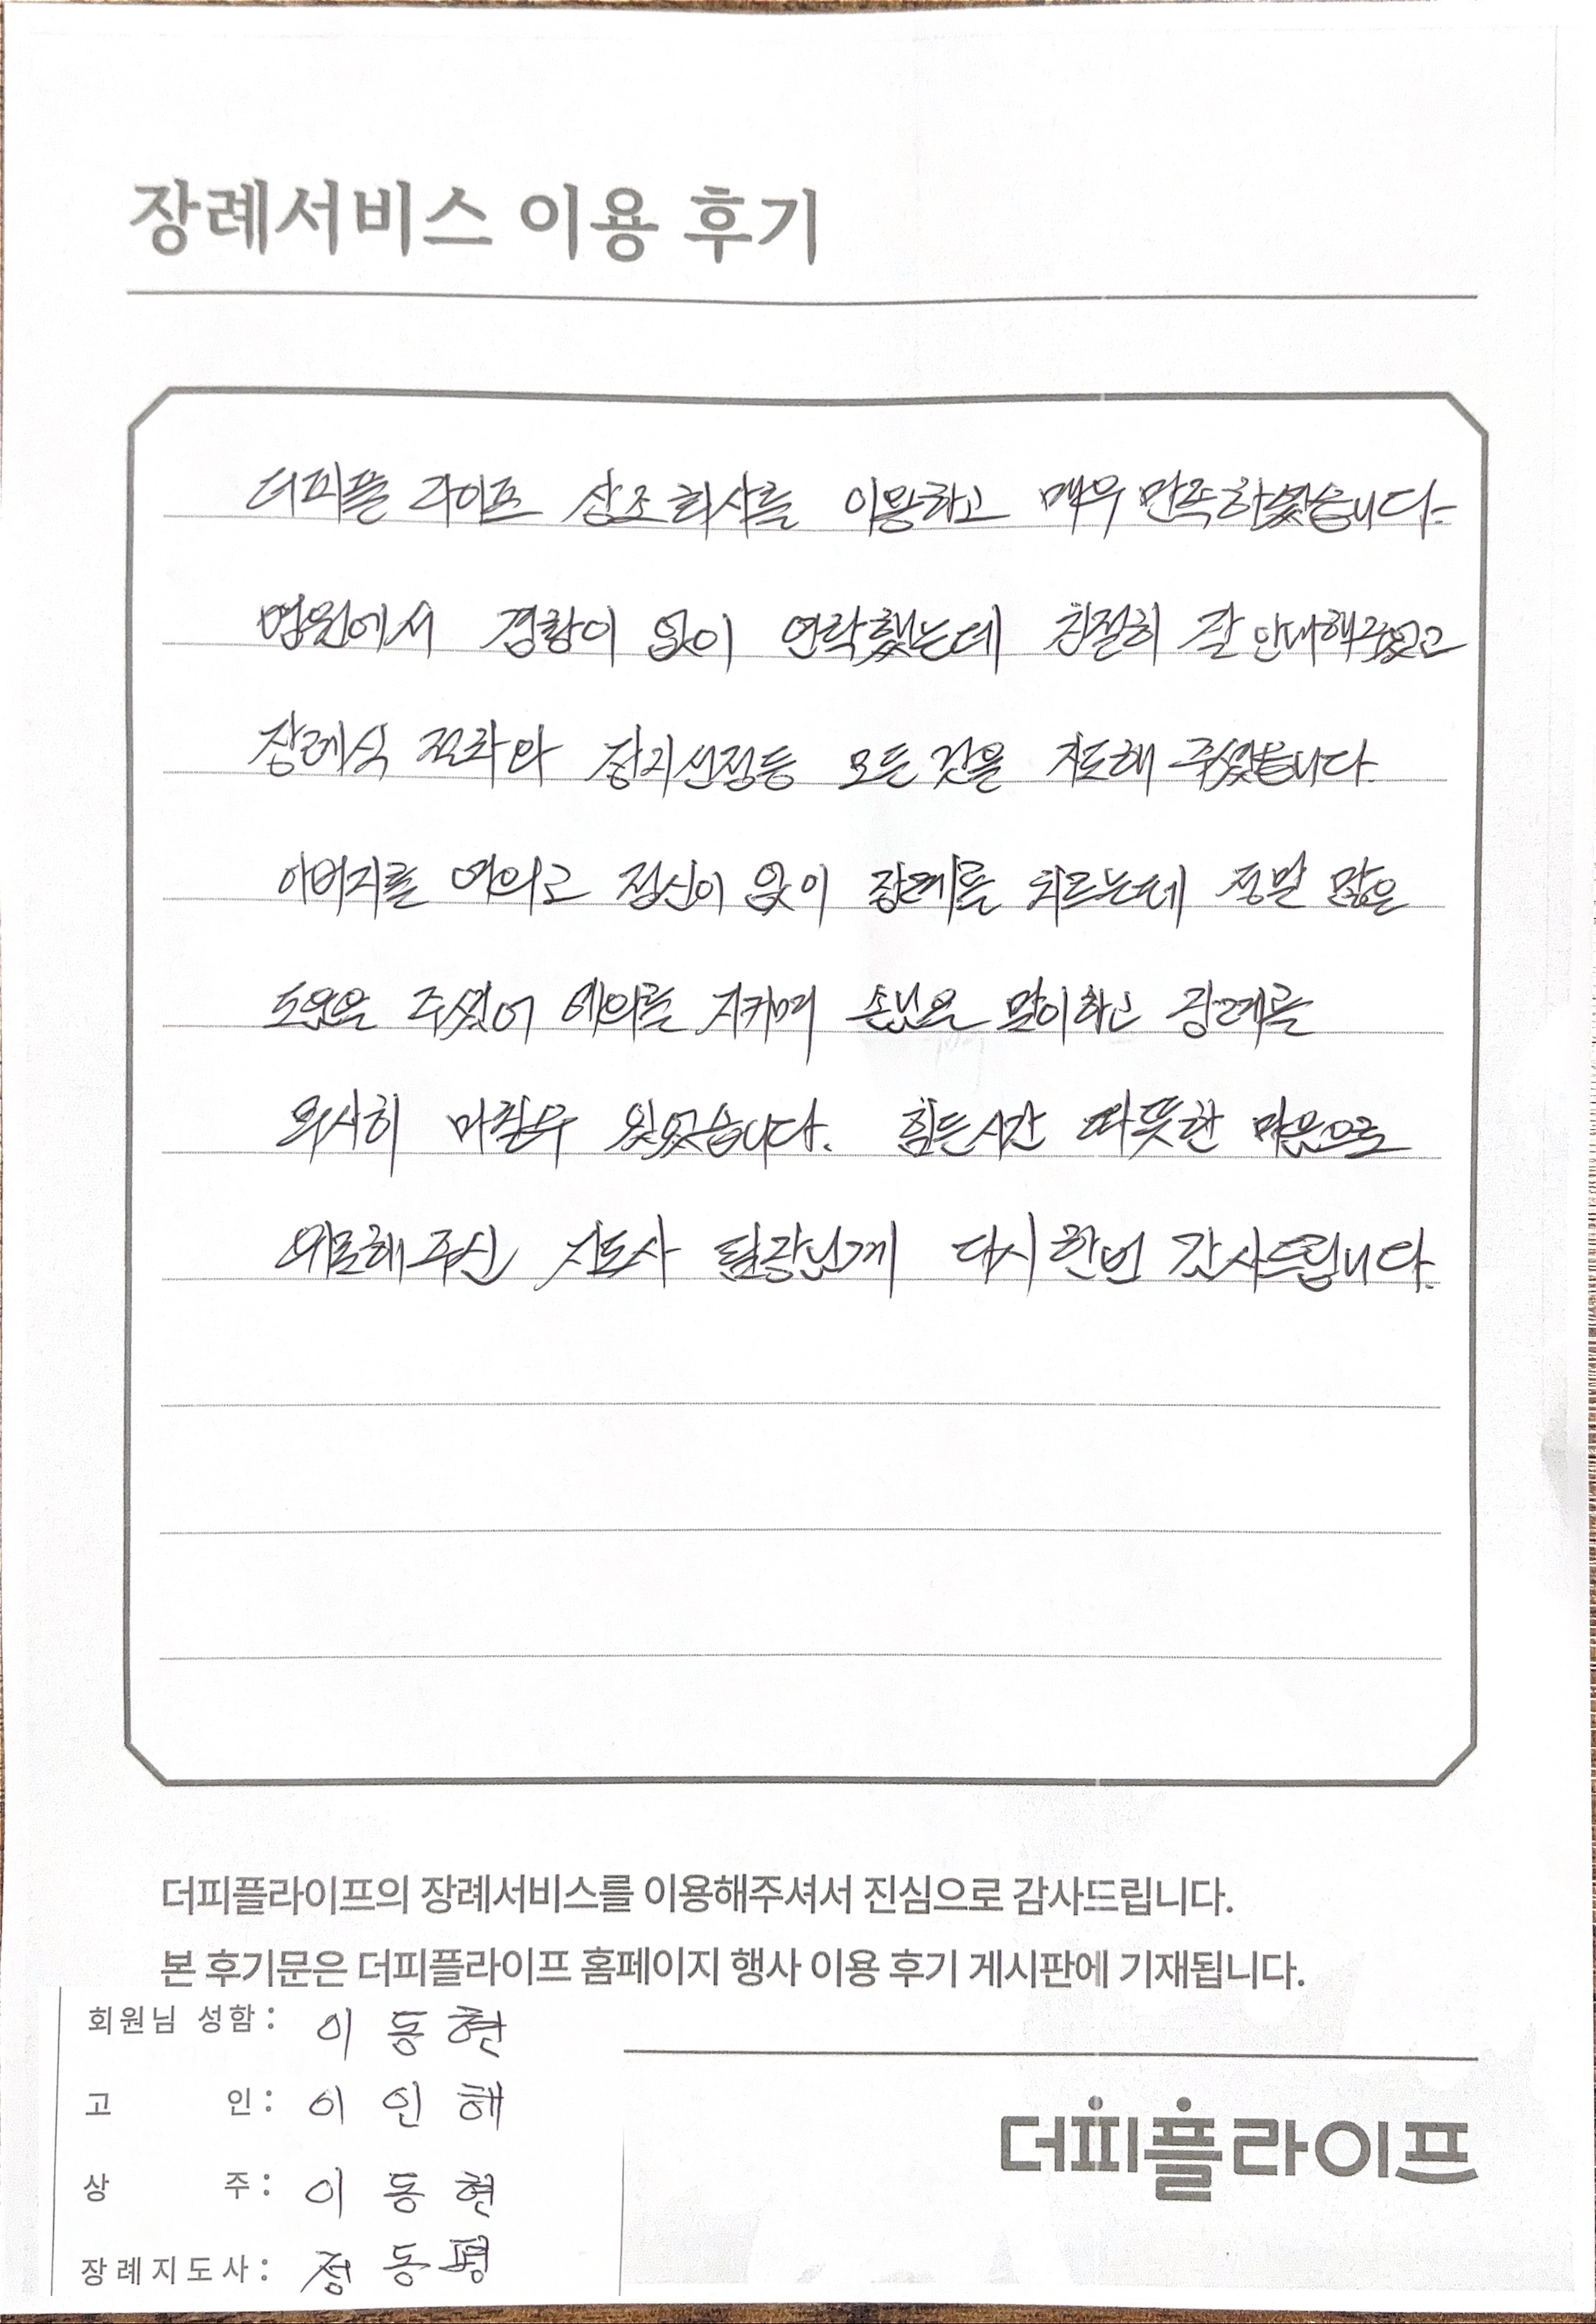 장례서비스 이용 후기
더피플 라이프 상조회사를 이용하고 매우 만족하였습니다.
병원에서 경황이 없이 연락했는데 친절히 잘 안내해주었고
장례식 절차와 장지선정등 모든 것을 지도해 주셨습니다.
아버지를 여의고 정신이 없이 장례를 치르는데 정말 많은
도움을 주셨어 예의를 지키며 손님을 맞이하고 장례를
무사히 마칠수 있었습니다. 힘든시간 따뜻한 마음으로
위로해주신 지도사 팀장님께 다시한번 감사드립니다.
더피플라이프의 장례서비스를 이용해주셔서 진심으로 감사드립니다.
본 후기문은 더피플라이프 홈페이지 행사 이용 후기 게시판에 기재됩니다.
회원님 성함: 이동현
고 인: 이인해
상 주: 이동현
장례지도사: 정동평
더피플라이프